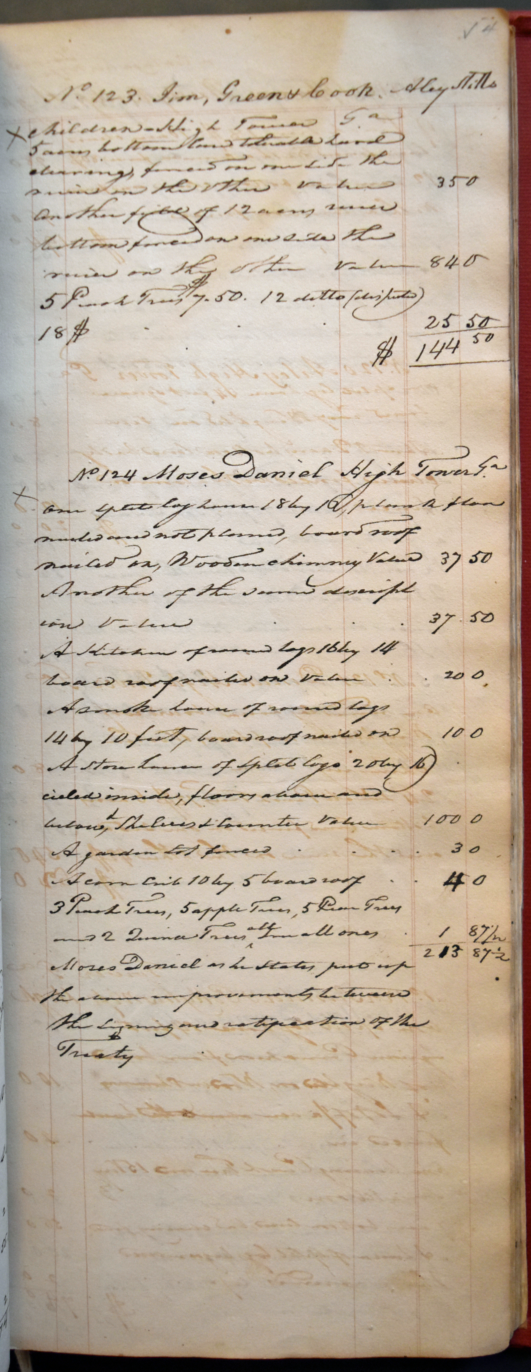 No 123. Jim, Green & Cook. Aley Hills
children High Tower Ga
5 acres bottom land tolerable hard
clearing, fenced on one side the
river on the other Value 35 0
Another field of 12 acres river
bottom fenced on one side the
river on the other Value 84 0
5 Peach Trees $7.50. 12 ditto (dispute)
18 $ 25 50
$ 144 50
No 124 Moses Daniel High Tower Ga
one split log house 18 by 16, plank floor
nailed and not planed, board roof
nailed on, Wooden chimney Value 37 50
Another of the same descript
ion Value 37 50
A Kitchen of round logs 16 by 14
board roof nailed on Value 20 0
A smoke house of round logs
14 by 10 feet, board roof nailed on 10 0
A Store house of split logs 20 by 16
cieled inside, floors above and
below, Shelves & Counter Value 100 0
A garden lot fenced 3 0
A corn Crib 10 by 5 board roof 4 0
3 Peach Trees, 5 apple Trees, 5 Pear Trees
and 2 Quince Trees all Small ones 1 87 1/2
Moses Daniel as he states, put up 213 87 1/2
the above improvements between
the signing and ratification of the
Treaty